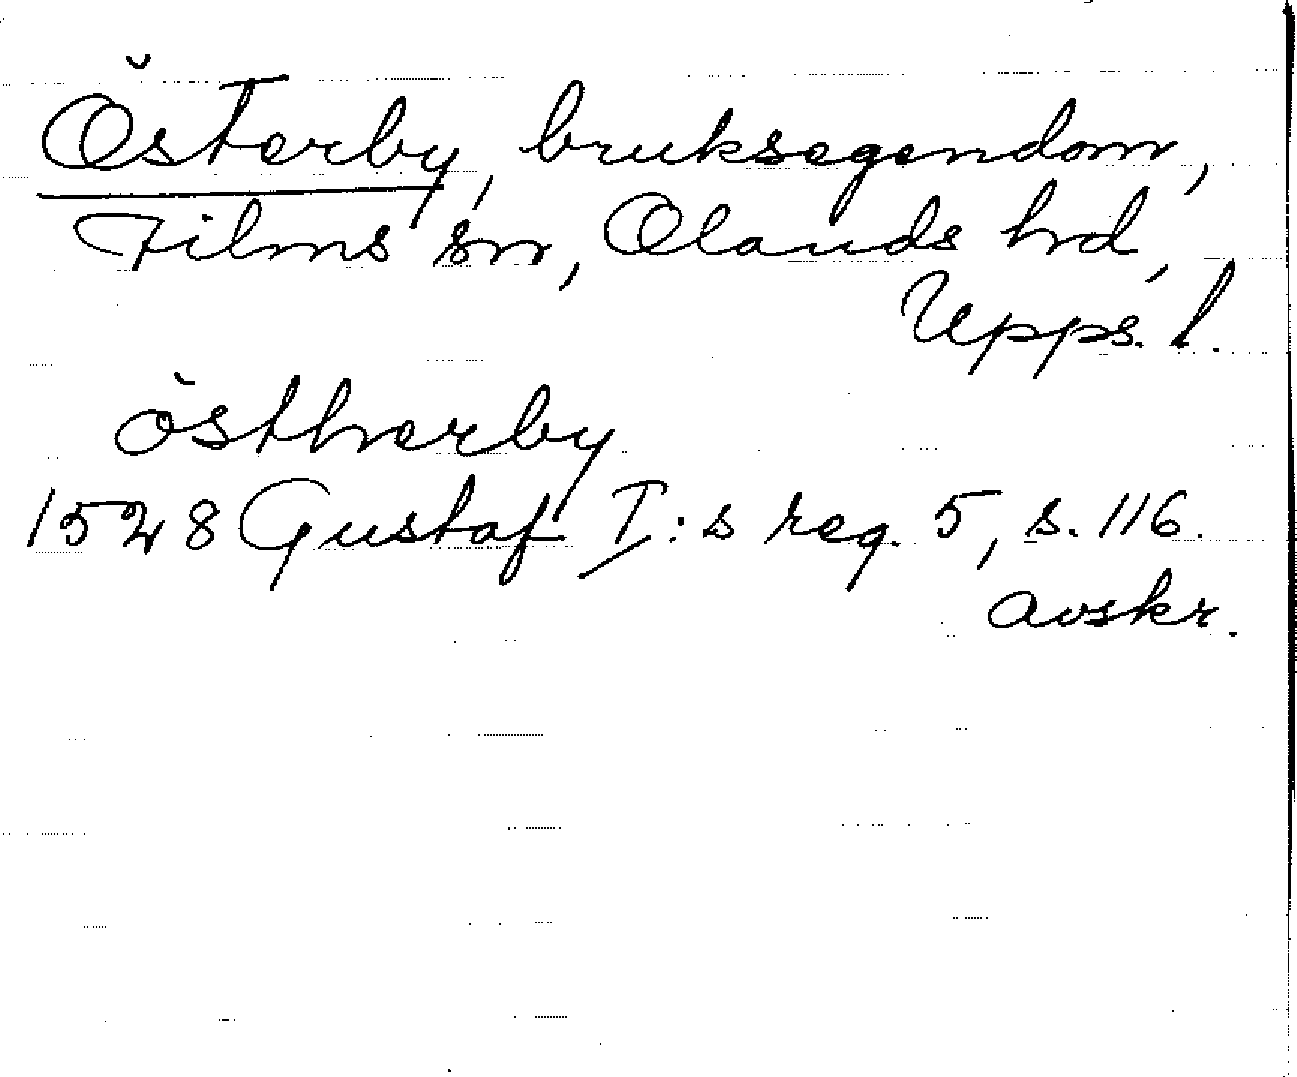 Österby, bruksegendom,
Films sn, Olands hd,
Upps. l.
östherby
1528 Gustaf I:s reg. 5, s. 116.
avskr.